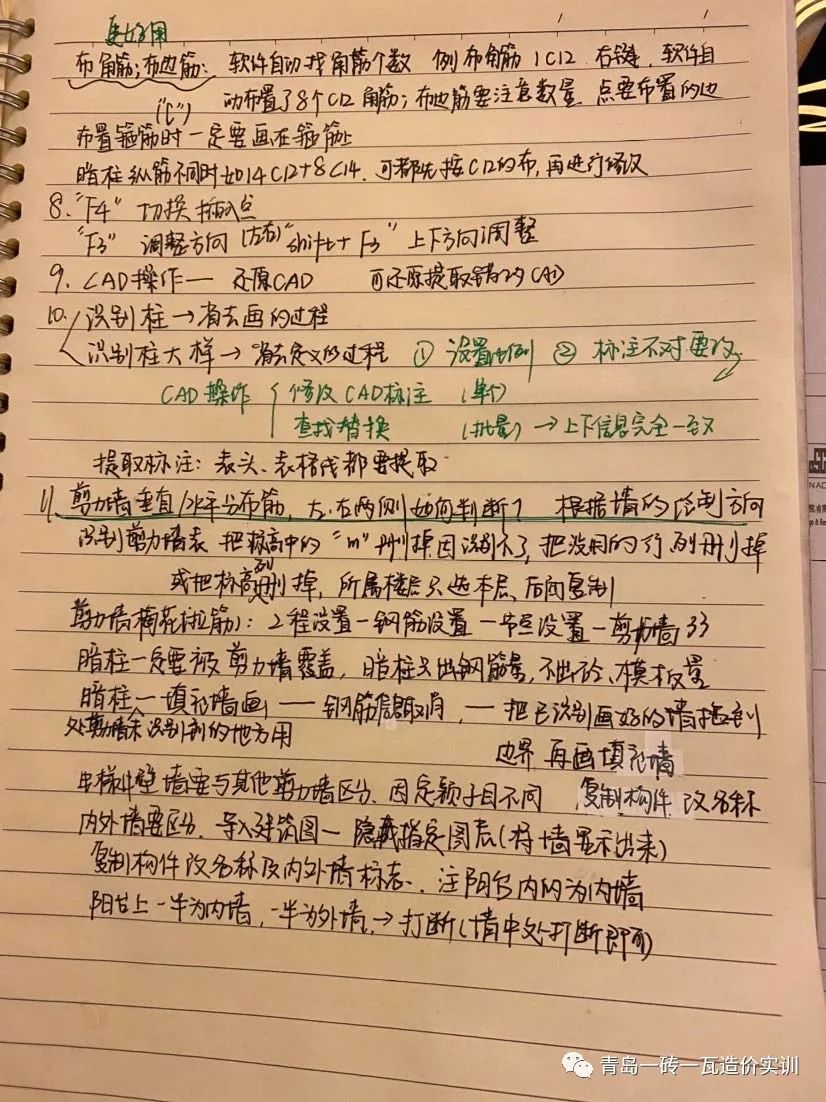 更好用
布角筋；布边筋： 软件自动找角筋个数 例布角筋 1C12 右键，软件自
("C") 动布置了8个C12角筋；布边筋要注意数量 点要布置的边
布置箍筋时一定要画在箍筋上
暗柱纵筋不同时如14C12+8C14，可都先按C12的布，再进行修改
8. "F4" 切换插入点
"F3" 调整方向(左右) "shift+F3" 上下方向调整
9. CAD操作— 还原CAD 可还原提取错的CAD
10. 识别柱→省去画的过程
识别柱大样→省去定义的过程 ① 设置比例 ② 标注不对要改
CAD操作 修改CAD标注 (单个)
查找替换 (批量)→上下信息完全一致
提取标注：表头、表格线都要提取
11. 剪力墙垂直/水平分布筋，左、右两侧如何判断？ 根据墙的绘制方向
识别剪力墙表 把标高中的"m"删掉因识别不了，把没用的行列删掉
或把标高列删掉，所属楼层只选本层，后面复制
剪力墙梅花(拉筋)：工程设置—钢筋设置—节点设置—剪力墙33
暗柱一定要被剪力墙覆盖，暗柱只出钢筋量，不出砼、模板量
暗柱—填充墙画—钢筋信息取消，—把已识别画好的墙拉到
处剪力墙未识别到的地方用
边界 再画填充墙
电梯井壁墙要与其他剪力墙区分，因定额子目不同 复制构件 改名称
内外墙要区分，导入建筑图—隐藏指定图层(将墙显示出来)
复制构件改名称及内外墙标志，注阴台内的为内墙
阳台上一半为内墙，一半为外墙，→打断(墙中处打断即可)
青岛一砖一瓦造价实训